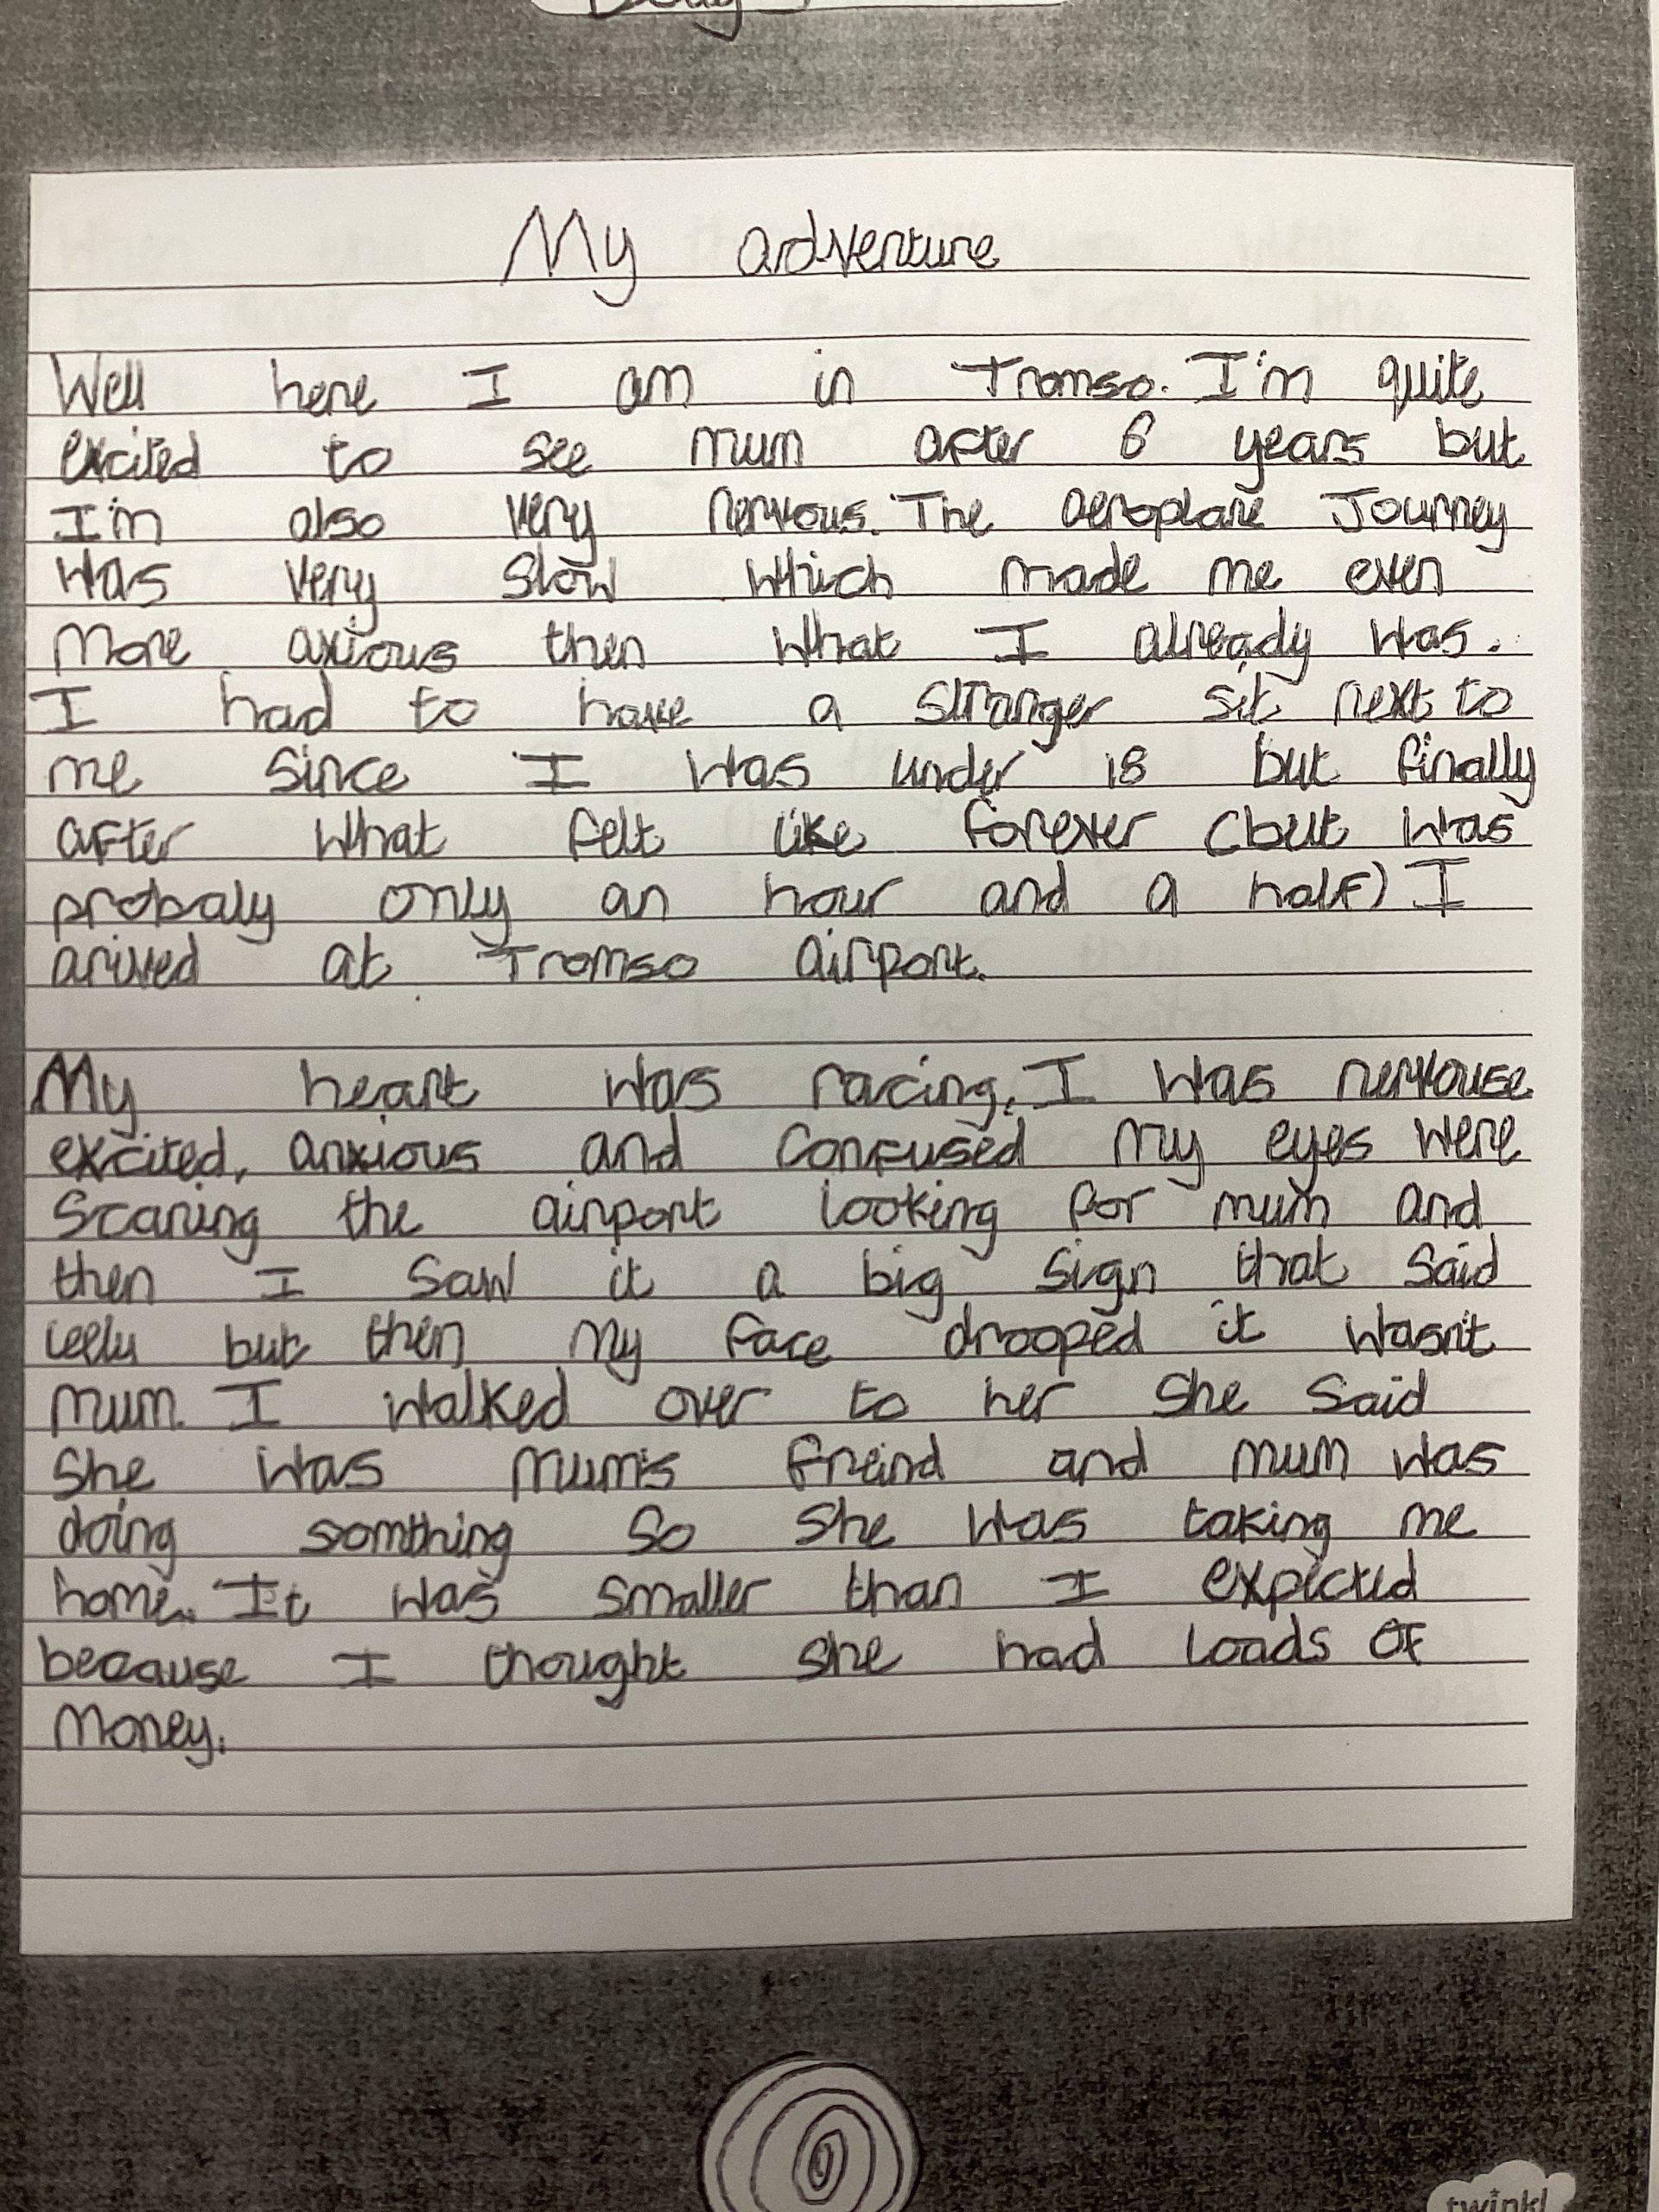 My adventure
Well here I am in Tromso. I'm quite
excited to see mum after 6 years but
I'm also very nervous. The aeroplane Journey
was very slow which made me even
more axious then what I already was.
I had to have a stranger sit next to
me since I was under 18 but finally
after what felt like forever (but was
probaly only an hour and a half) I
arived at Tromso airport.
My heart was racing, I was nervouse
excited, anxious and confused my eyes were
scaning the airport looking for mum and
then I saw it a big sign that said
but then my face drooped it wasn't
mum. I walked over to her she said
she was mum's freind and mum was
doing somthing so she was taking me
home. It was smaller than I expected
because I thought she had loads of
money.
twinkl